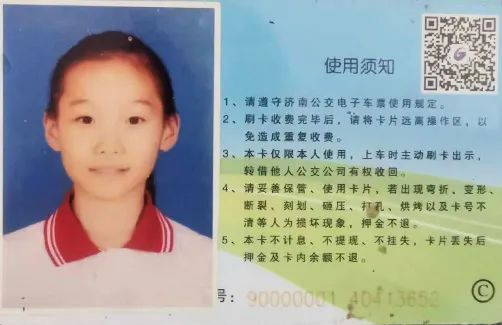 使用须知
1、请遵守济南公交电子车票使用规定。
2、刷卡收费完毕后，请将卡片远离操作区，以
免造成重复收费。
3、本卡仅限本人使用，上车时主动刷卡出示，
转借他人公交公司有权收回。
4、请妥善保管、使用卡片，若出现弯折、变形、
断裂、刻划、砸压、打孔、烘烤以及卡号不
清等人为损坏现象，押金不退。
5、本卡不计息、不提现、不挂失，卡片丢失后
押金及卡内余额不退。
号：90000001 40413652
©